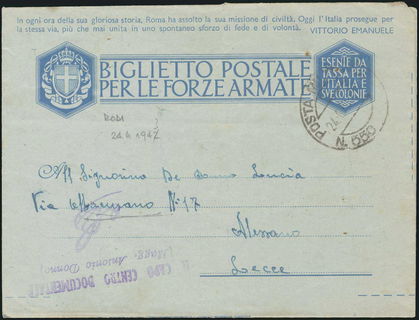 In ogni ora della sua gloriosa storia, Roma ha assolto la sua missione di civiltà. Oggi l'Italia prosegue per
la stessa via, più che mai unita in uno spontaneo sforzo di fede e di volontà. VITTORIO EMANUELE
BIGLIETTO POSTALE
PER LE FORZE ARMATE
ESENTE DA
TASSA PER
L'ITALIA E
SUE COLONIE
POSTA
N. 550
RODI
24.4.1942
All Signorina De Lucia
Via N° 17
Alessano
Lecce
IL CAPO CENTRO DOCUMENTALE
(Magg. Antonio Donno)